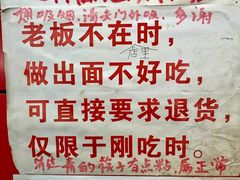 想吸烟,请去门外吸,多谢
老板不在时,
店里
做出面不好吃,
可直接要求退货,
仅限于刚吃时。
有的筷子有点粘,属正常